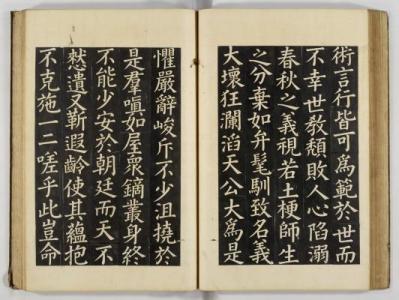 術言行皆可爲範於世而
不幸世教頹敗人心陷溺
春秋之義視若土梗師生
之分棄如弁髦馴致名義
大壞狂瀾滔天公大爲是
懼嚴辭峻斥不少沮撓於
是羣嗔如屋衆鏑叢身終
不能少安於朝廷而天不
憖遺又靳遐齡使其蘊抱
不克施一二嗟乎此豈命